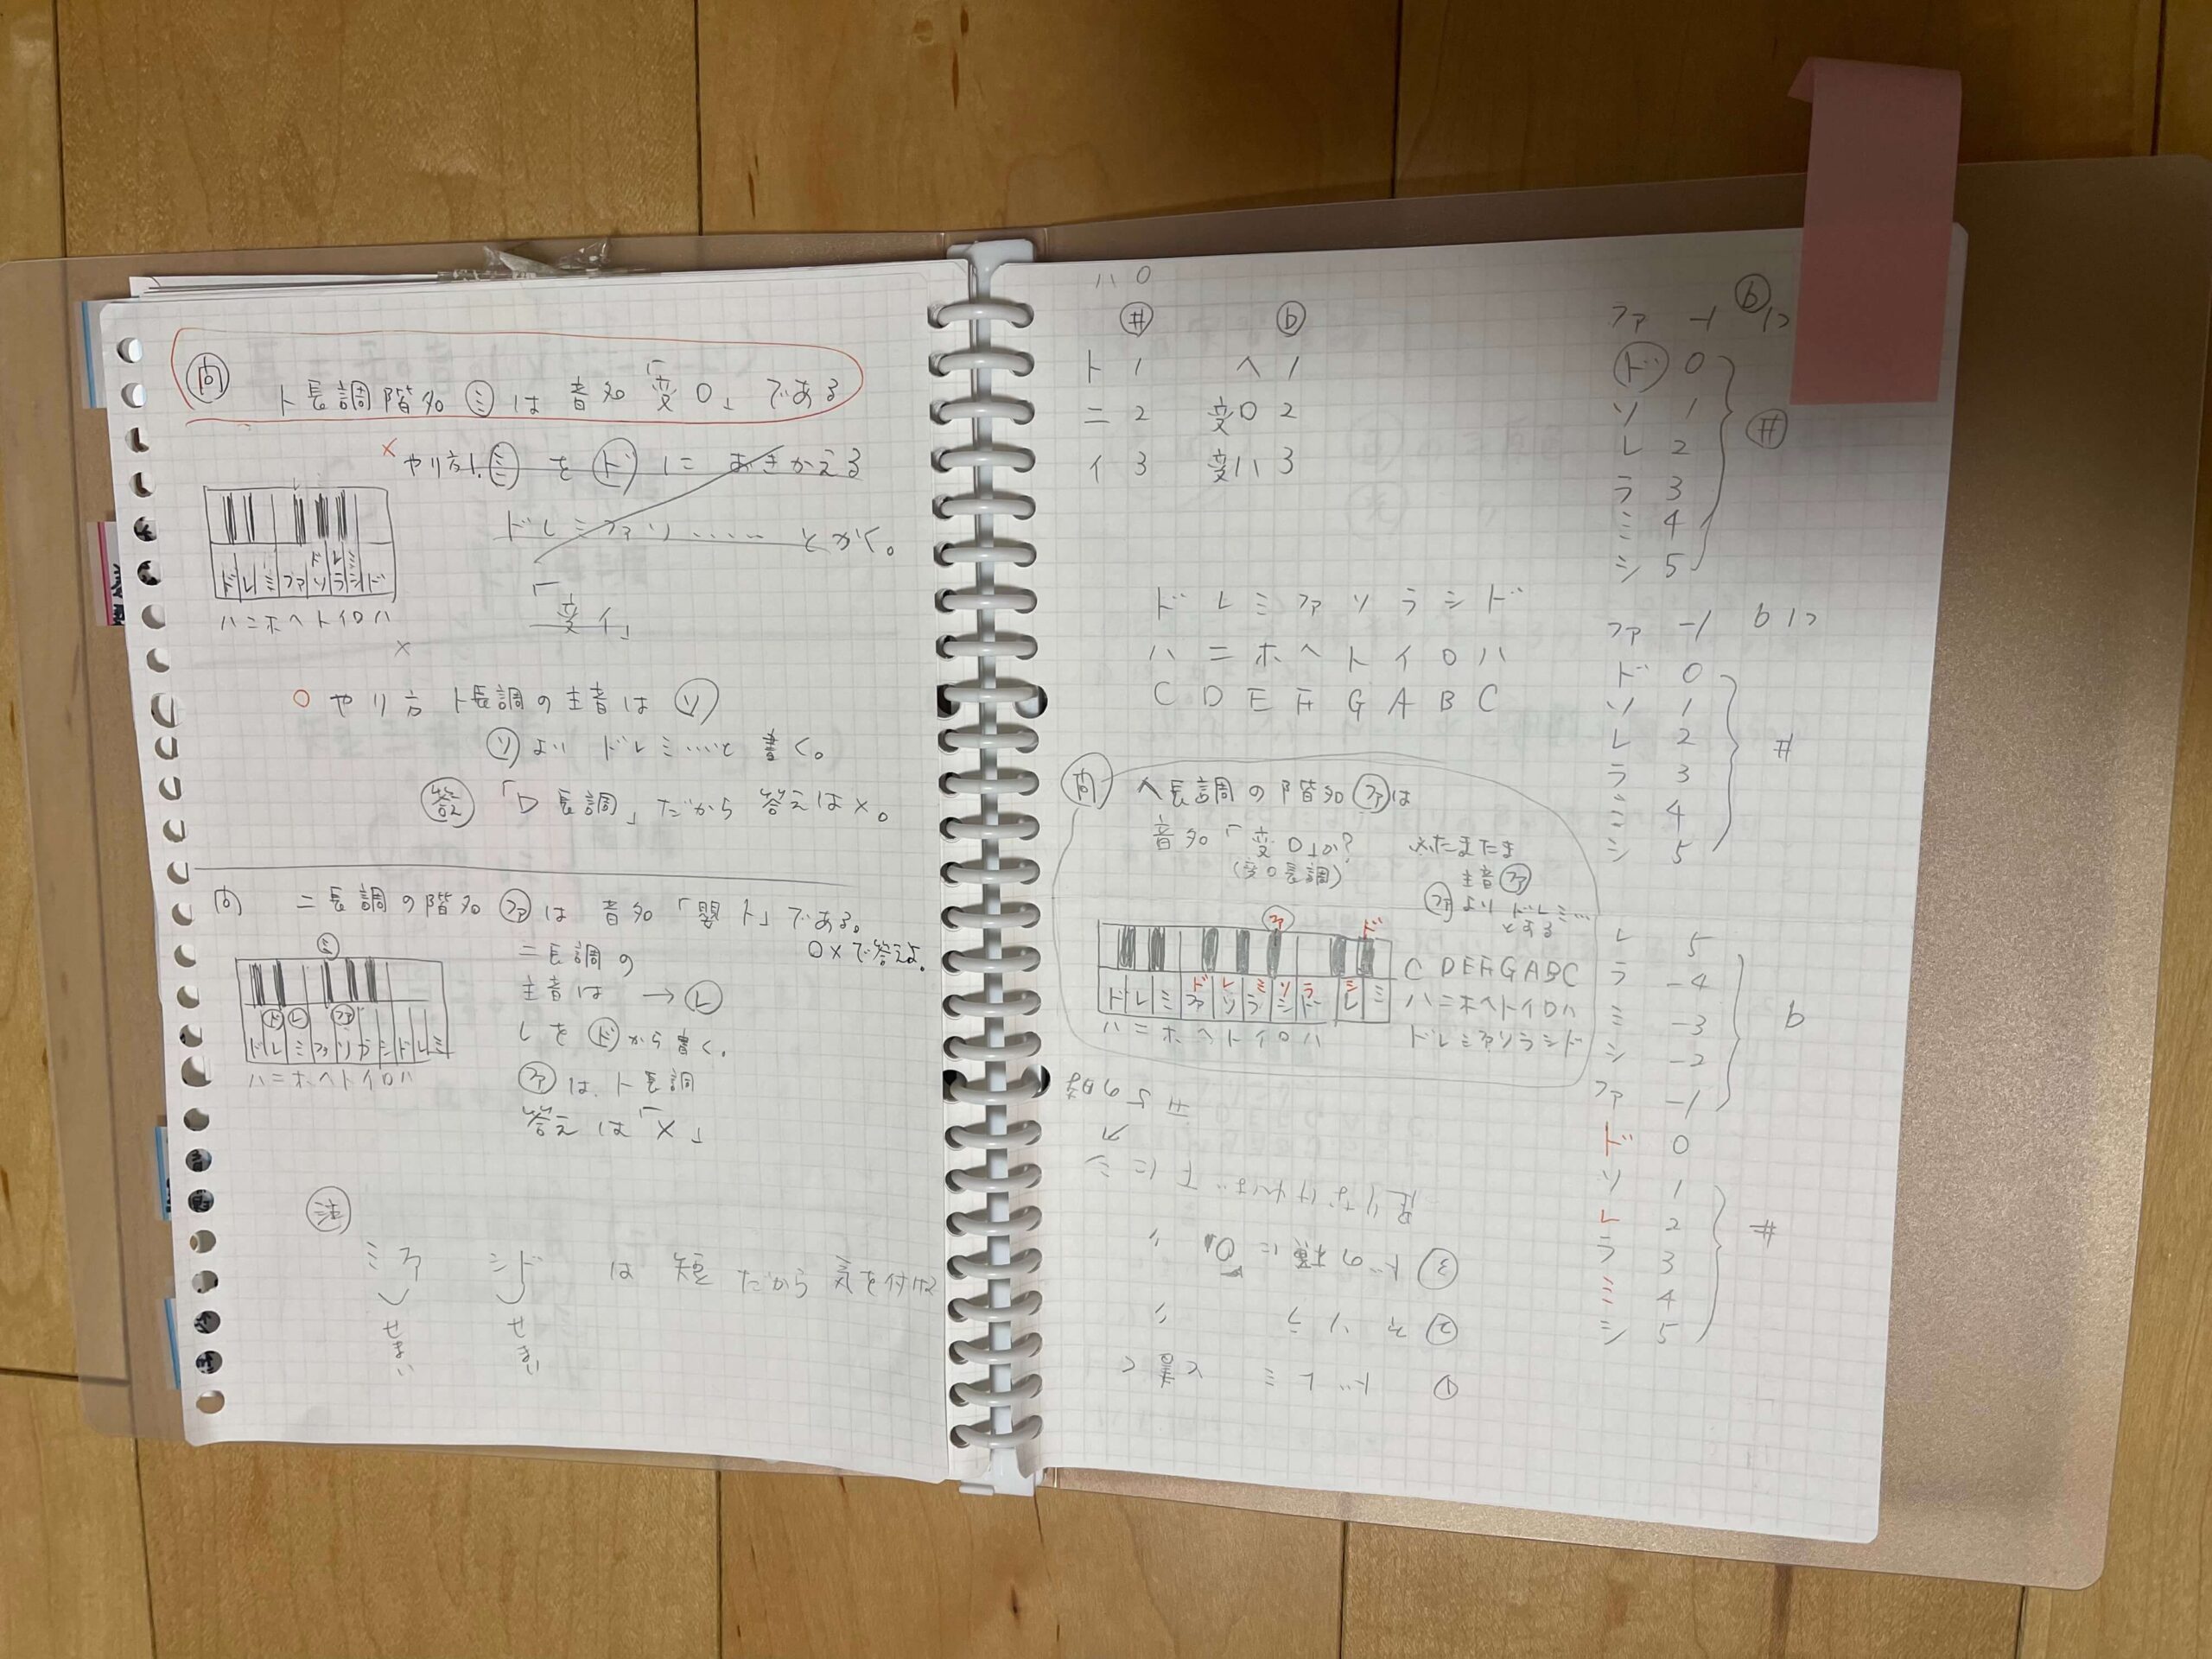 問
ト長調階名ミは音名「変ロ」である
× やり方1.ミをドにおきかえる
ドレミファソ……とかく。
「変イ」
ドレミ
ドレミファソラシド
ハニホヘトイロハ
×
○ やり方 ト長調の主音はソ
ソよりドレミ…と書く。
答え「ロ長調」だから答えは×。
問 ニ長調の階名ファは音名「嬰ト」である。
○×で答えよ。
ニ長調の
主音は → レ
レをドから書く。
ファは、ト長調
答えは「×」
ド レ ファ
ドレミファソラシドレミ
ハニホヘトイロハ
注
ミファ シド は 短だから気を付け
せまい せまい
ハ 0
# b
ト 1 ヘ 1
ニ 2 変ロ 2
イ 3 変ホ 3
ドレミファソラシド
ハニホヘトイロハ
C D E F G A B C
問 ヘ長調の階名ファは
音名「変ロ」か?
(変ロ長調)
※たまたま
主音ファ
ファよりドレミ…
とする
ファ ド
ドレミソラ シ
ドレミファソラシドレミ
ハニホヘトイロハ
C DEFGABC
ハニホヘトイロハ
ドレミファソラシド
① ドレミ と書く
② ファソラ 〃
③ ドの横に 〃
足りなければ下にシ
#5の時
ファ -1 bに
ド 0
ソ 1
レ 2
ラ 3
ミ 4
シ 5
#
ファ -1 bに
ド 0
ソ 1
レ 2
ラ 3
ミ 4
シ 5
#
レ 5
ラ -4
ミ -3
シ -2
ファ -1
b
ド 0
ソ 1
レ 2
ラ 3
ミ 4
シ 5
#